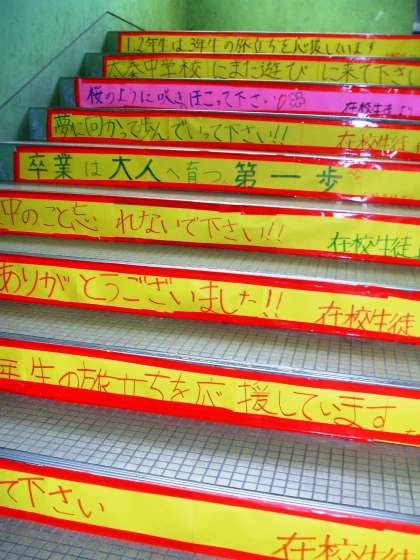 1,2年生は3年生の旅立ちを応援しています
太秦中学校にまた遊びに来て下さ
桜のように咲きほこって下さい 在校生徒より
夢に向かって歩んでいって下さい!! 在校生徒よ
卒業は大人へ育つ第一歩
中のこと忘れないで下さい!! 在校生徒よ
ありがとうございました!! 在校生徒
年生の旅立ちを応援しています
て下さい 在校生徒